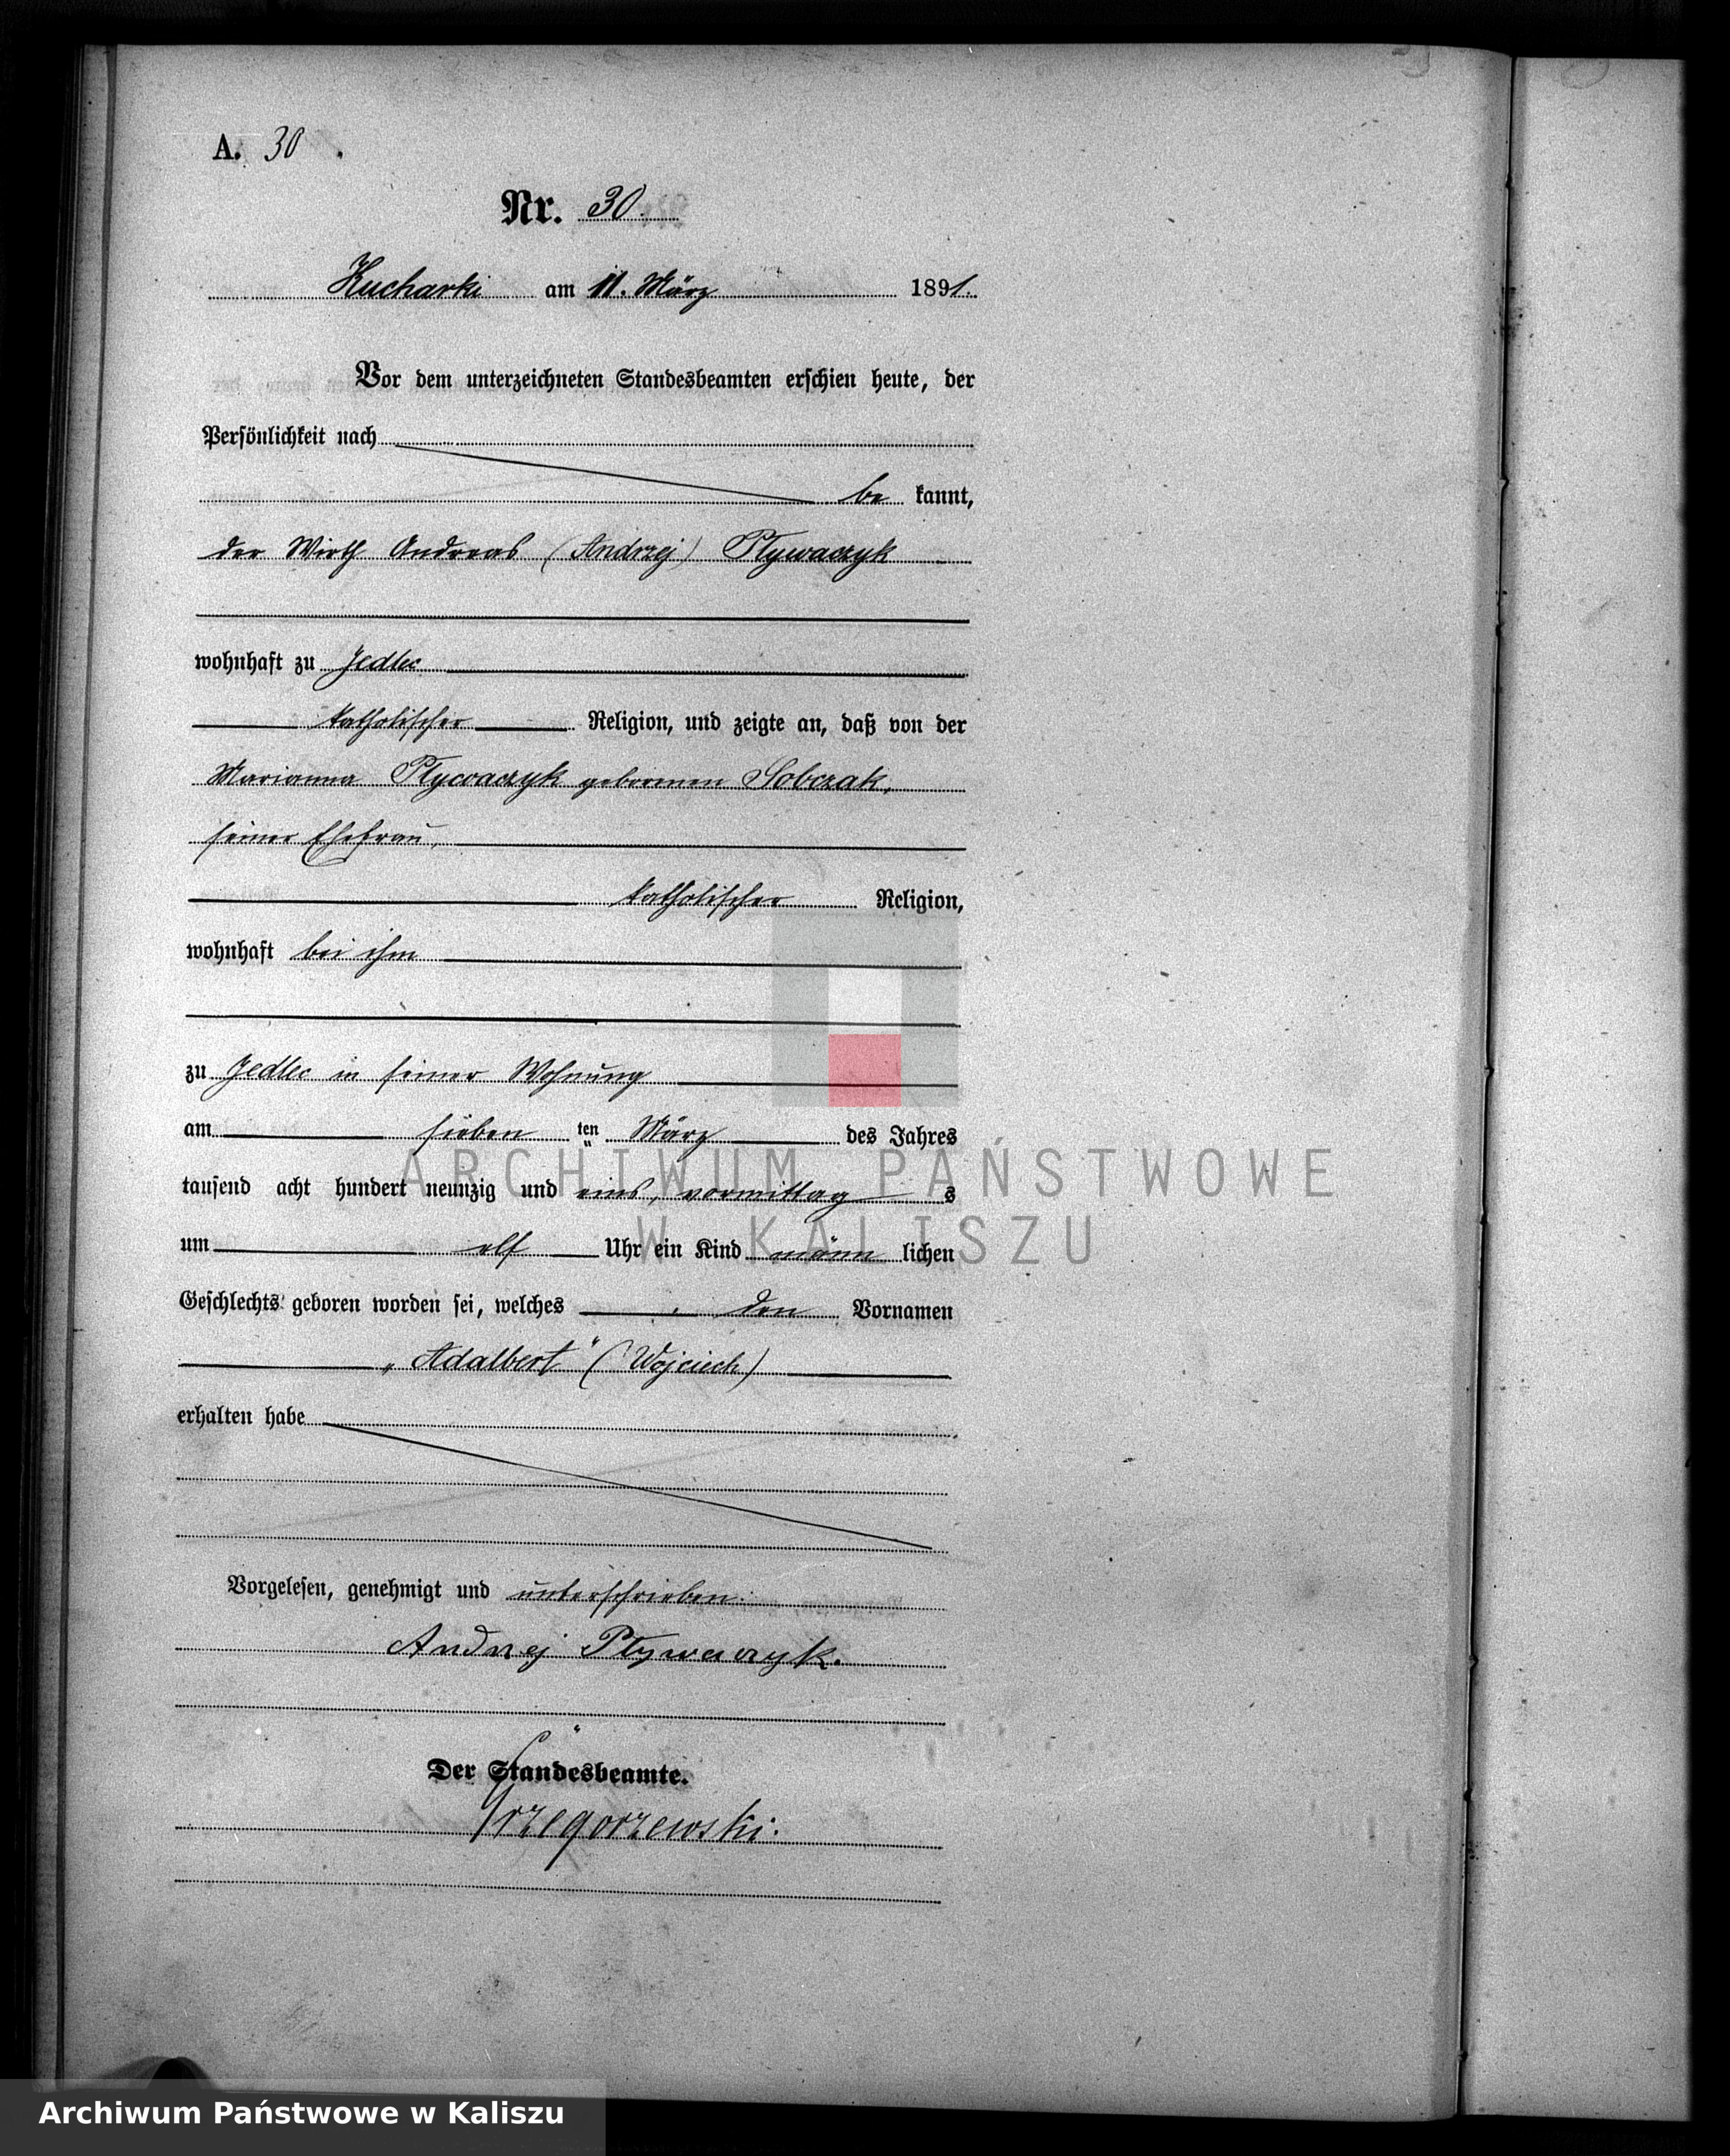 A. 30.
Nr. 30.
Kucharki am 11. März 1891.
Vor dem unterzeichneten Standesbeamten erschien heute, der
Persönlichkeit nach
be kannt,
der Wirth Andreas (Andrzej) Pływaczyk
wohnhaft zu Jedlec
katholischer Religion, und zeigte an, daß von der
Marianna Pływaczyk geborenen Sobczak,
seiner Ehefrau,
katholischer Religion,
wohnhaft bei ihm
zu Jedlec in seiner Wohnung
am sieben ten März des Jahres
tausend acht hundert neunzig und eins, vormittag s
um elf Uhr ein Kind männ lichen
Geschlechts geboren worden sei, welches den Vornamen
„Adalbert" (Wojciech)
erhalten habe
Vorgelesen, genehmigt und unterschrieben:
Andrzej Pływaczyk.
Der Standesbeamte.
Grzegorzewski.
ARCHIWUM PAŃSTWOWE
W KALISZU
Archiwum Państwowe w Kaliszu